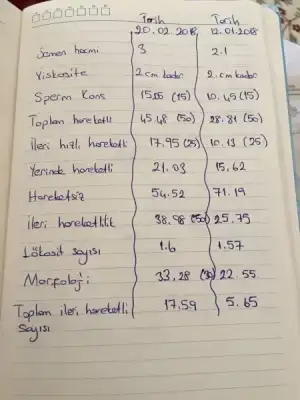 Tarih Tarih
20.02.2018 12.01.2018
Semen hacmi 3 2.1
Viskosite 2 cm kadar 2 cm kadar
Sperm Kons (15) 10.45 (15)
Toplam hareketli 45.48 (50) 28.81 (50)
İleri hızlı hareketli 17.95 (25) 10.13 (25)
Yerinde hareketli 21.03 15,62
Hareketsiz 54.52 71.19
İleri hareketlilik 38.98 (50) 25.75
Lökosit sayısı 1.6 1.57
Morfoloji 33.28 (30) 22.55
Toplam ileri hareketli 17.59 5.65
Sayısı